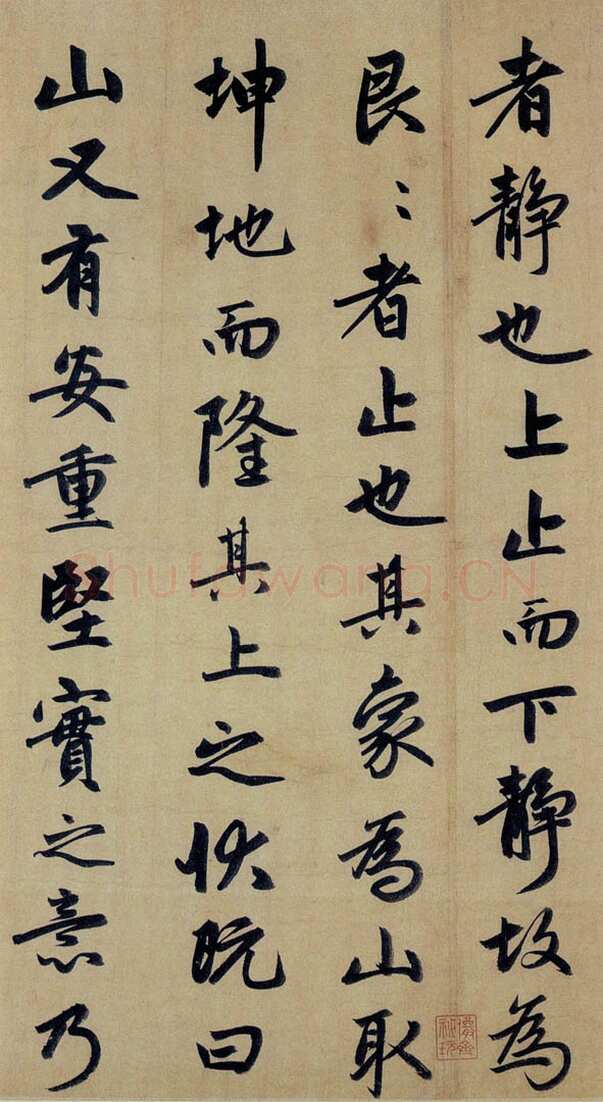 者靜也上止而下靜故為
艮〻者止也其象為山取
坤地而隆其上之狀既曰
山又有安重堅實之意乃
Shufawang.CN